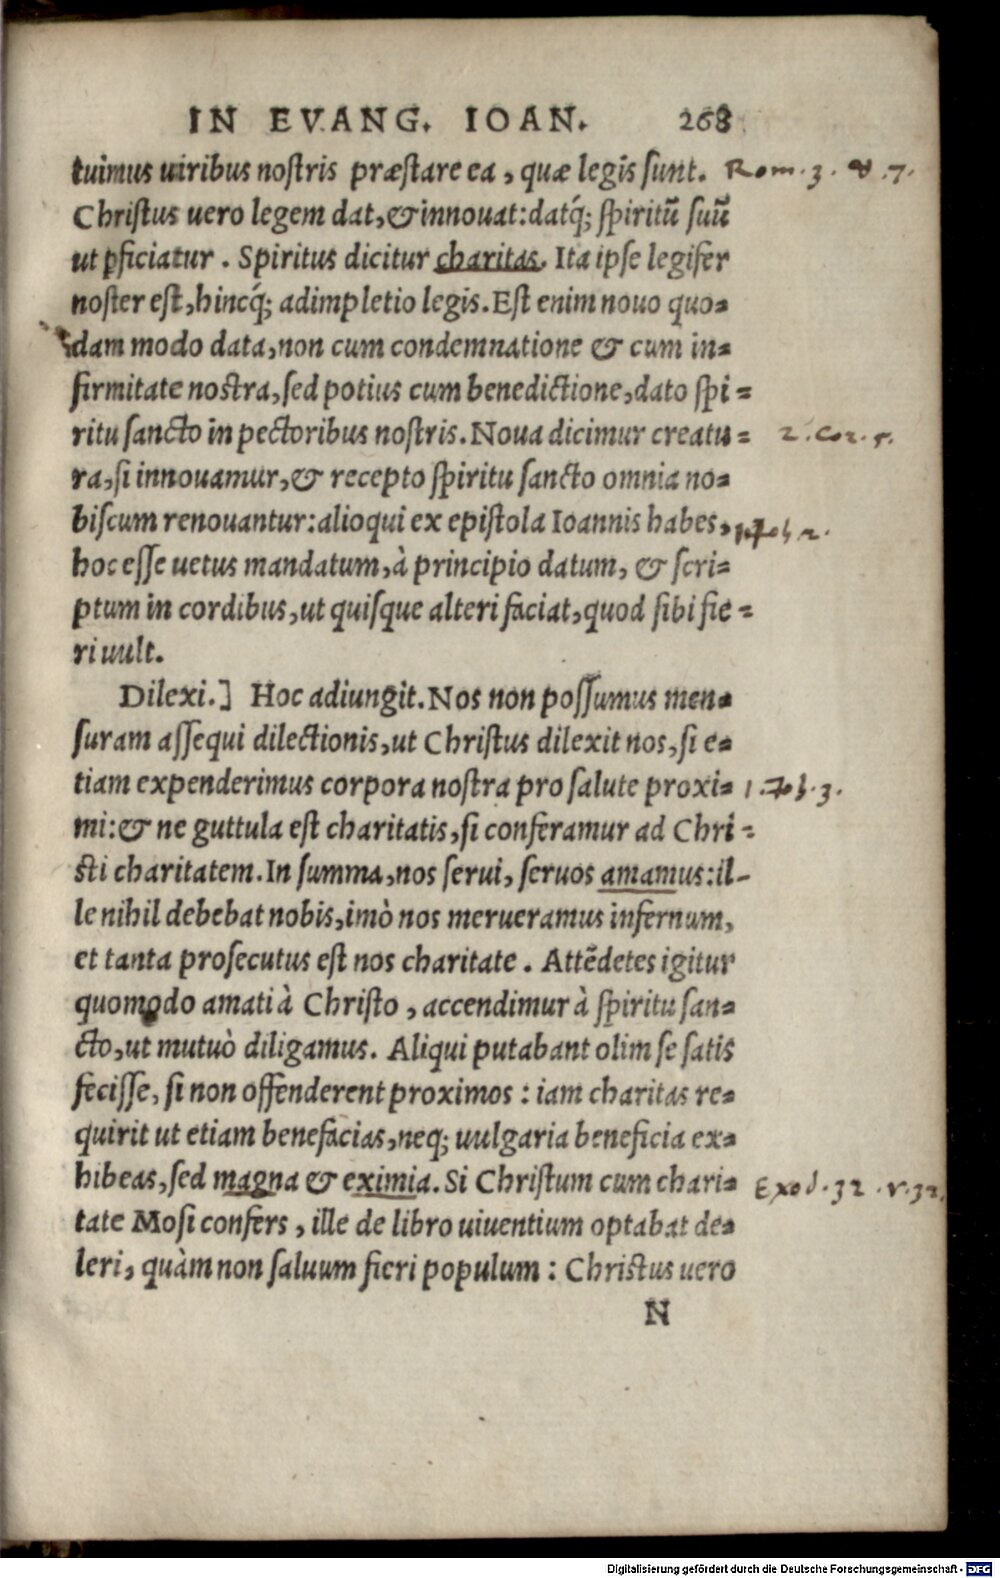 IN EVANG. IOAN. 268
tuimus uiribus nostris præstare ea, quæ legis sunt. Rom. 3. & .7.
Christus uero legem dat, & innouat: datq́; spiritū suū
ut ꝑficiatur. Spiritus dicitur charitas. Ita ipse legifer
noster est, hincq́; adimpletio legis. Est enim nouo quo=
dam modo data, non cum condemnatione & cum in=
firmitate nostra, sed potius cum benedictione, dato spi=
ritu sancto in pectoribus nostris. Noua dicimur creatu= 2. Cor. 5.
ra, si innouamur, & recepto spiritu sancto omnia no=
biscum renouantur: alioqui ex epistola Ioannis habes, 1. Joh 2.
hoc esse uetus mandatum, à principio datum, & scri=
ptum in cordibus, ut quisque alteri faciat, quod sibi fie=
ri uult.
Dilexi.] Hoc adiungit. Nos non possumus men=
suram assequi dilectionis, ut Christus dilexit nos, si e=
tiam expenderimus corpora nostra pro salute proxi= 1. Joh. 3.
mi: & ne guttula est charitatis, si conferamur ad Chri=
sti charitatem. In summa, nos serui, seruos amamus: il-
le nihil debebat nobis, imò nos merueramus infernum,
et tanta prosecutus est nos charitate. Attēdetes igitur
quomodo amati à Christo, accendimur à spiritu san=
cto, ut mutuò diligamus. Aliqui putabant olim se satis
fecisse, si non offenderent proximos: iam charitas re=
quirit ut etiam benefacias, neq; uulgaria beneficia ex=
hibeas, sed magna & eximia. Si Christum cum chari= Exod. 32. v. 32.
tate Mosi confers, ille de libro uiuentium optabat de=
leri, quàm non saluum fieri populum: Christus uero
N
Digitalisierung gefördert durch die Deutsche Forschungsgemeinschaft - DFG